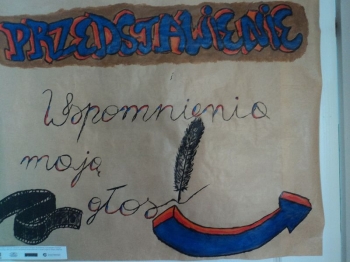 PRZEDSTAWIENIE
Wspomnienia
mają
głos